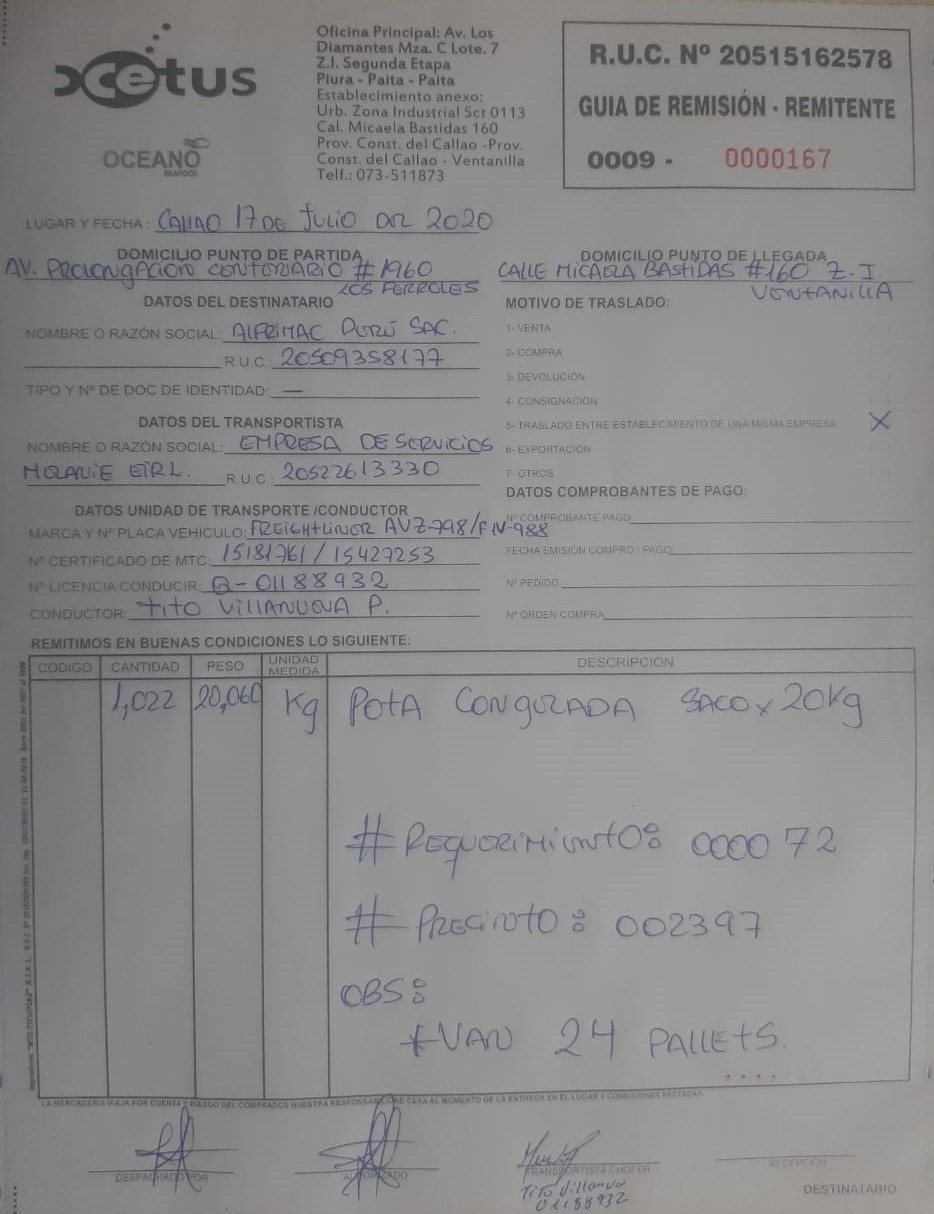 xcetus
OCEANO
SEAFOOD
Oficina Principal: Av. Los
Diamantes Mza. C Lote. 7
Z.I. Segunda Etapa
Piura - Paita - Paita
Establecimiento anexo:
Urb. Zona Industrial Sct 0113
Cal. Micaela Bastidas 160
Prov. Const. del Callao -Prov.
Const. del Callao - Ventanilla
Telf.: 073-511873
R.U.C. Nº 20515162578
GUIA DE REMISIÓN - REMITENTE
0009 - 0000167
LUGAR Y FECHA: CALLAO 17 DE JULIO DEL 2020
DOMICILIO PUNTO DE PARTIDA
AV. PROLONGACION CENTENARIO #1960
LOS FERROLES
DOMICILIO PUNTO DE LLEGADA
CALLE MICAELA BASTIDAS #160 Z.I.
VENTANILLA
DATOS DEL DESTINATARIO
NOMBRE O RAZÓN SOCIAL: ALFRIMAC PERÚ SAC.
R.U.C.: 20509358177
TIPO Y Nº DE DOC DE IDENTIDAD: —
MOTIVO DE TRASLADO:
1- VENTA
2- COMPRA
3- DEVOLUCIÓN
4- CONSIGNACIÓN
5- TRASLADO ENTRE ESTABLECIMIENTO DE UNA MISMA EMPRESA X
6- EXPORTACIÓN
7- OTROS
DATOS DEL TRANSPORTISTA
NOMBRE O RAZÓN SOCIAL: EMPRESA DE SERVICIOS
MELANIE EIRL. R.U.C.: 20522613330
DATOS UNIDAD DE TRANSPORTE /CONDUCTOR
MARCA Y Nº PLACA VEHICULO: FREIGHTLINER AVZ-798/FIV-988
Nº CERTIFICADO DE MTC: 15181761 / 15427253
Nº LICENCIA CONDUCIR: Q-01188932
CONDUCTOR: TITO VILLANUEVA P.
DATOS COMPROBANTES DE PAGO:
Nº COMPROBANTE PAGO
FECHA EMISIÓN COMPRO / PAGO
Nº PEDIDO
Nº ORDEN COMPRA
REMITIMOS EN BUENAS CONDICIONES LO SIGUIENTE:
CODIGO CANTIDAD PESO UNIDAD MEDIDA DESCRIPCION
1,022 20,060 Kg POTA CONGELADA SACO x 20Kg
# REQUERIMIENTO: 000072
# PRECINTO: 002397
OBS:
*VAN 24 PALLETS.
LA MERCADERIA VIAJA POR CUENTA Y RIESGO DEL COMPRADOS NUESTRA RESPONSABILIDAD CESA AL MOMENTO DE LA ENTREGA EN EL LUGAR Y CONDICIONES PACTADAS
DESPACHADO POR
AUTORIZADO
TRANSPORTISTA CHOFER
Tito Villanueva
01188932
RECEPCIÓN
DESTINATARIO